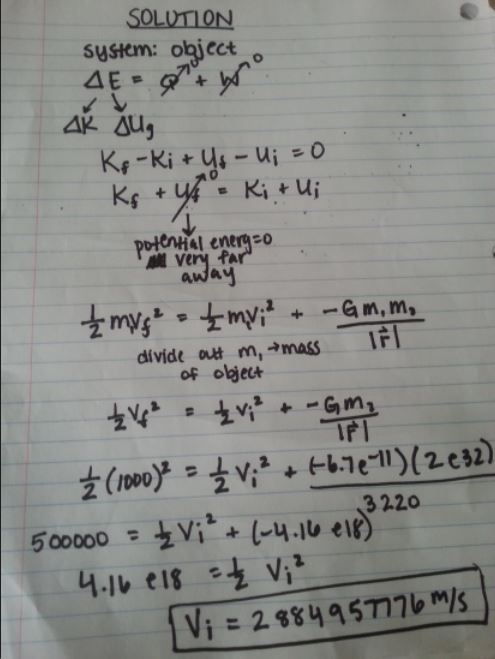 SOLUTION
system: object
ΔE = Q⁰ + W⁰
ΔK ΔUg
Kf - Ki + Uf - Ui = 0
Kf + Uf⁰ = Ki + Ui
potential energ=0
very far
away
½ m₁Vf² = ½ m₁Vi² + -G m₁ m₂ / |r⃗|
divide out m₁ → mass
of object
½ Vf² = ½ Vi² + -G m₂ / |r⃗|
½ (1000)² = ½ Vi² + (-6.7e⁻¹¹)(2e32) / 3220
500000 = ½ Vi² + (-4.16 e18)
4.16 e18 = ½ Vi²
Vi = 2884957776 m/s